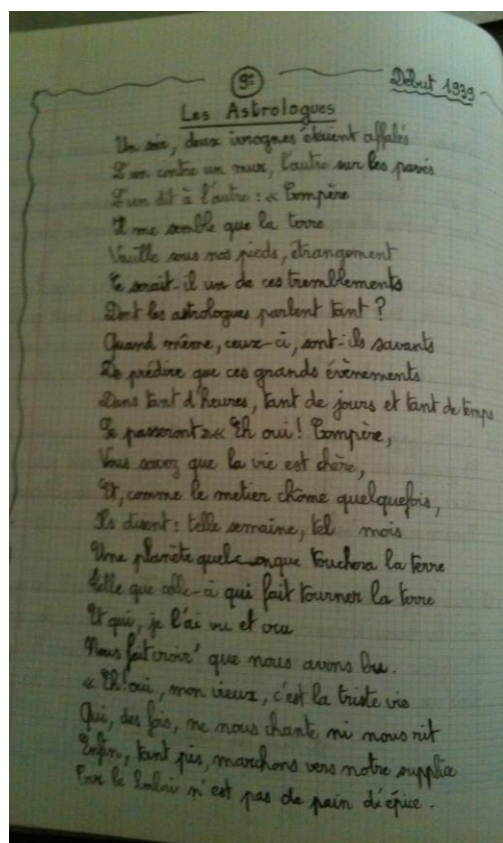 9e
Début 1939
Les Astrologues
Un soir, deux ivrognes étaient affalés
L'un contre un mur, l'autre sur les pavés
L'un dit à l'autre : « Compère
Il me semble que la terre
Vacille sous nos pieds, étrangement
Ce serait-il un de ces tremblements
Dont les astrologues parlent tant ?
Quand même, ceux-ci, sont-ils savants
De prédire que ces grands évènements
Dans tant d'heures, tant de jours et tant de temps
Se passeront » « Eh oui ! Compère,
Vous savez que la vie est chère,
Et, comme le metier chôme quelquefois,
Ils disent : telle semaine, tel mois
Une planète quelconque touchera la terre
Telle que celle-ci qui fait tourner la terre
Et qui, je l'ai vu et cru
Nous fait croir' que nous avons bu.
« Eh ! oui, mon vieux, c'est la triste vie
Qui, des fois, ne nous chante ni nous rit
Enfin, tant pis, marchons vers notre supplice
Car le balai n'est pas de pain d'épice.